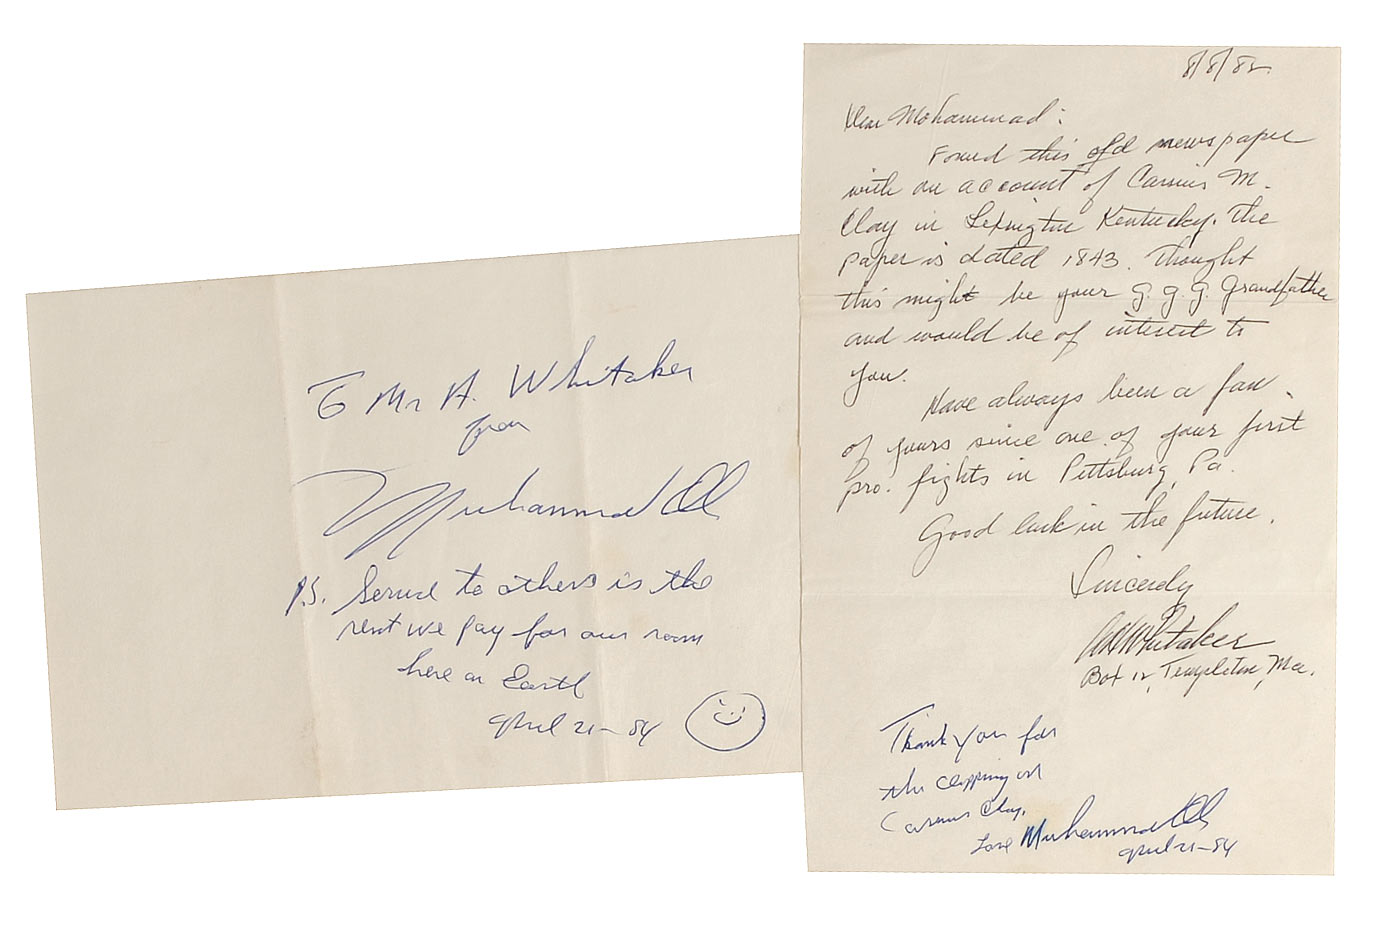 To Mr A. Whitaker
from
Muhammad Ali
P.S. Servie to others is the
rent we pay for our room
here on Earth
April 21-84
8/8/82
Dear Mohammad:
Found this old newspaper
with an account of Cassius M.
Clay in Lexington Kentucky. The
paper is dated 1843. Thought
this might be your g. g. g. Grandfather
and would be of interest to
you.
Have always been a fan
of yours since one of your first
pro. fights in Pittsburg, Pa.
Good luck in the future.
Sincerely
Whitaker
Box 12, Templeton, Ma.
Thank you for
the clipping on
Cassius Clay.
Love Muhammad Ali
April 21-84